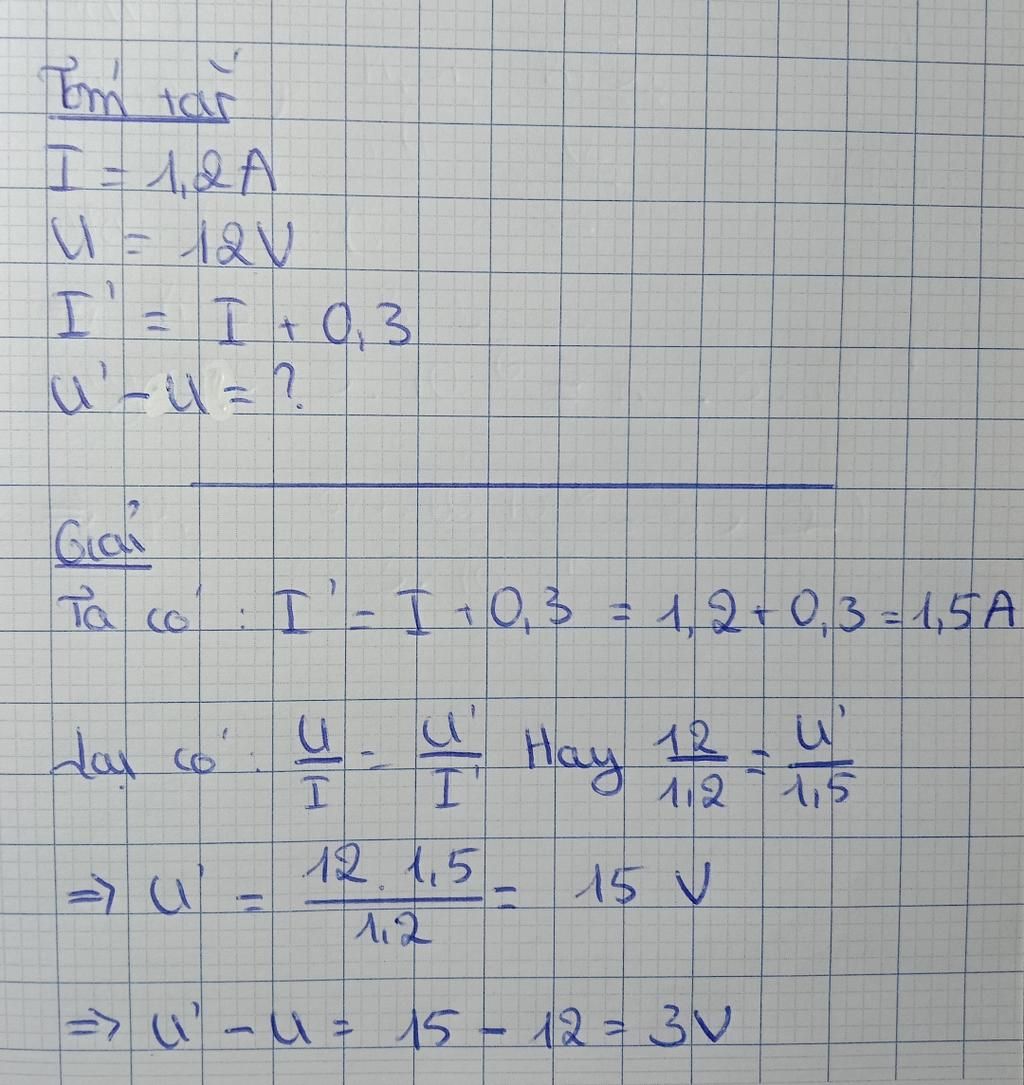 Tóm tắt
I = 1,2A
U = 12V
I' = I + 0,3
U' - U = ?
Giải
Ta có : I' = I + 0,3 = 1,2 + 0,3 = 1,5A
Lại có : U/I = U'/I' Hay 12/1,2 = U'/1,5
=> U' = 12.1,5/1,2 = 15 V
=> U' - U = 15 - 12 = 3V